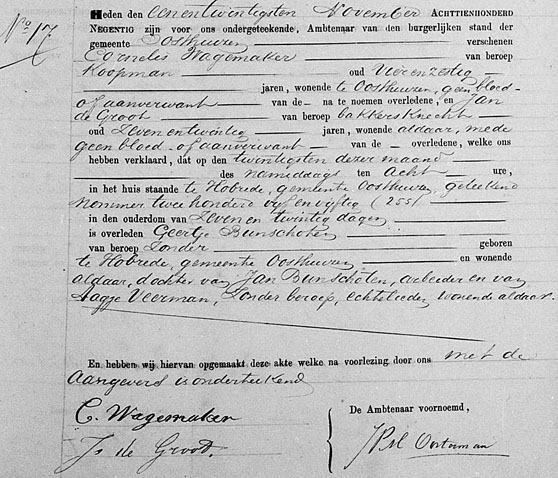 No 17
Heden den eenentwintigsten November ACHTTIENHONDERD
NEGENTIG zijn voor ons ondergeteekende, Ambtenaar van den burgerlijken stand der
gemeente Oosthuizen verschenen
Cornelis Wagemaker van beroep
Koopman oud Vierenzestig
jaren, wonende te Oosthuizen, geen bloed-
of aanverwant van de na te noemen overledene, en Jan
de Groot van beroep bakkersknecht
oud Zevenentwintig jaren, wonende aldaar, mede
geen bloed- of aanverwant van de overledene, welke ons
hebben verklaard, dat op den twintigsten dezer maand
des namiddags ten acht ure,
in het huis staande te Hobrede, gemeente Oosthuizen, geteekend
nommer twee honderd vijf en vijftig (255)
in den ouderdom van Zeven en twintig dagen
is overleden Geertje Bunschoten
van beroep Zonder geboren
te Hobrede, gemeente Oosthuizen en wonende
aldaar, dochter van Jan Bunschoten, arbeider en van
Aagje Veerman, Zonder beroep, echtelieden, wonende aldaar.
En hebben wij hiervan opgemaakt deze akte welke na voorlezing door ons met de
Aangevers is onderteekend
C. Wagemaker
De Ambtenaar voornoemd,
Js de Groot.
Oosterman